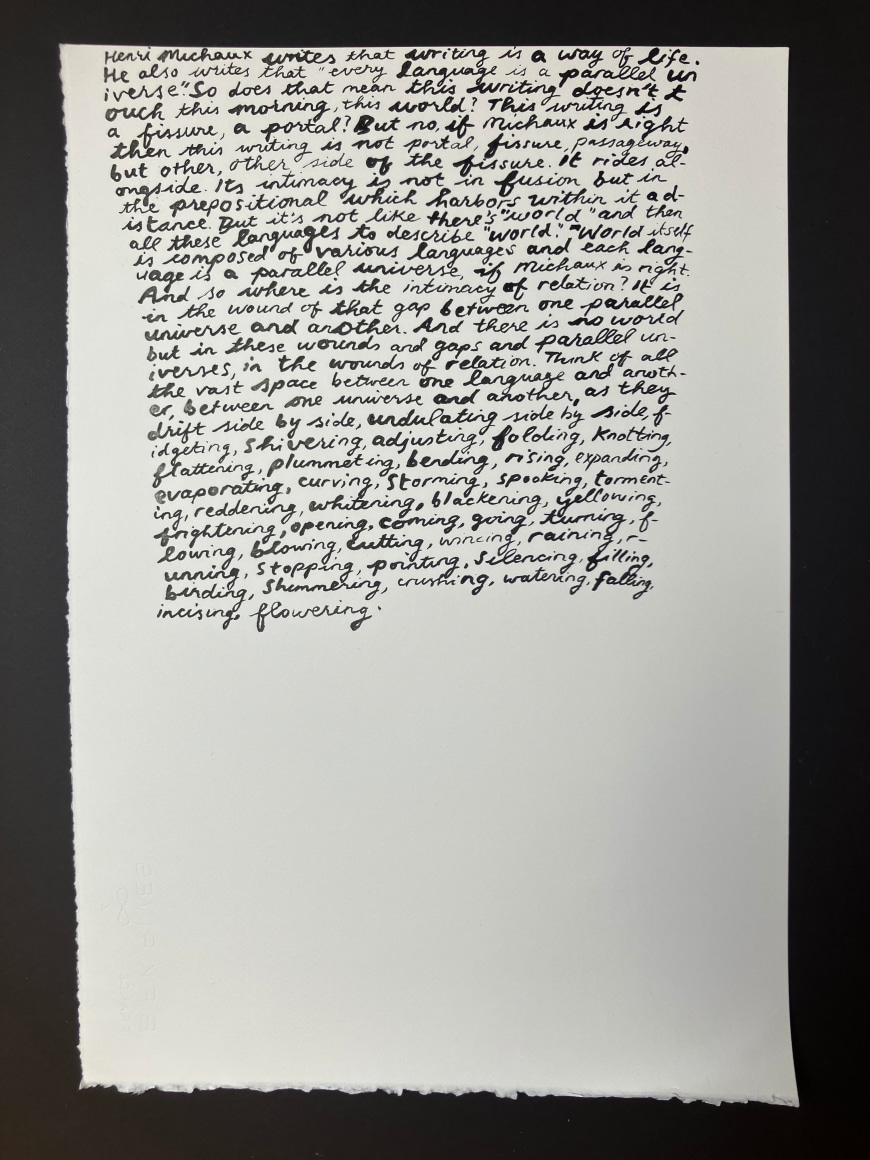 Henri Michaux writes that writing is a way of life.
He also writes that "every language is a parallel un
iverse". So does that mean this writing doesn't t
ouch this morning, this world? This writing is
a fissure, a portal? But no, if Michaux is right
then this writing is not portal, fissure, passageway,
but other, other side of the fissure. It rides al-
ongside. Its intimacy is not in fusion but in
the prepositional which harbors within it a d-
istance. But it's not like there's "world" and then
all these languages to describe "world." "World itself
is composed of various languages and each lang-
uage is a parallel universe, if Michaux is right.
And so where is the intimacy of relation? It is
in the wound of that gap between one parallel
universe and another. And there is no world
but in these wounds and gaps and parallel un-
iverses, in the wounds of relation. Think of all
the vast space between one language and anoth-
er, between one universe and another, as they
drift side by side, undulating side by side, f-
idgeting, shivering, adjusting, folding, knotting,
flattening, plummeting, bending, rising, expanding,
evaporating, curving, storming, spooking, torment-
ing, reddening, whitening, blackening, yellowing,
frightening, opening, coming, going, turning, f-
lowing, blowing, cutting, wincing, raining, r-
unning, stopping, pointing, silencing, filling,
birding, shimmering, crushing, watering, falling,
incising, flowering.